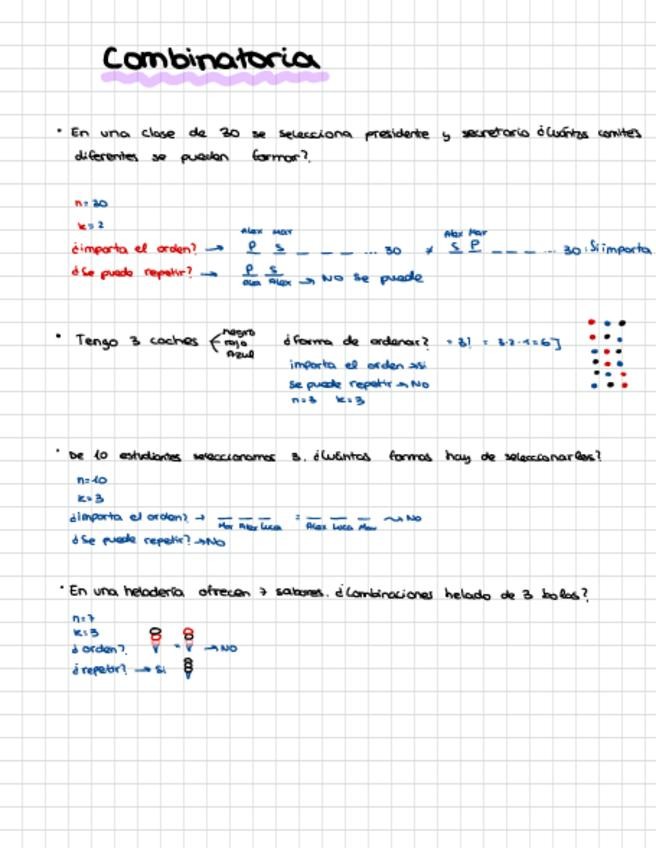 Combinatoria
• En una clase de 30 se selecciona presidente y secretario ¿Cuántos comites
diferentes se pueden formar?
n=30
k=2
Alex Mar Alex Mar
¿importa el orden? → P S _ _ _ ... 30 ≠ S P _ _ _ ... 30 : Si importa
¿Se puede repetir? → P S → NO se puede
Alex Alex
• Tengo 3 coches negro rojo Azul ¿forma de ordenar? = 3! = 3·2·1=6
importa el orden → si
se puede repetir → No
n=3 k=3
• De 10 estudiantes seleccionamos 3. ¿Cuántas formas hay de seleccionarlos?
n=10
k=3
¿importa el orden? → _ _ _ = _ _ _ → No
Mar Alex Luca Alex Luca Mar
¿Se puede repetir? → No
• En una heladería ofrecen 7 sabores. ¿Combinaciones helado de 3 bolas?
n=7
k=3
¿orden? = → NO
¿repetir? → Si